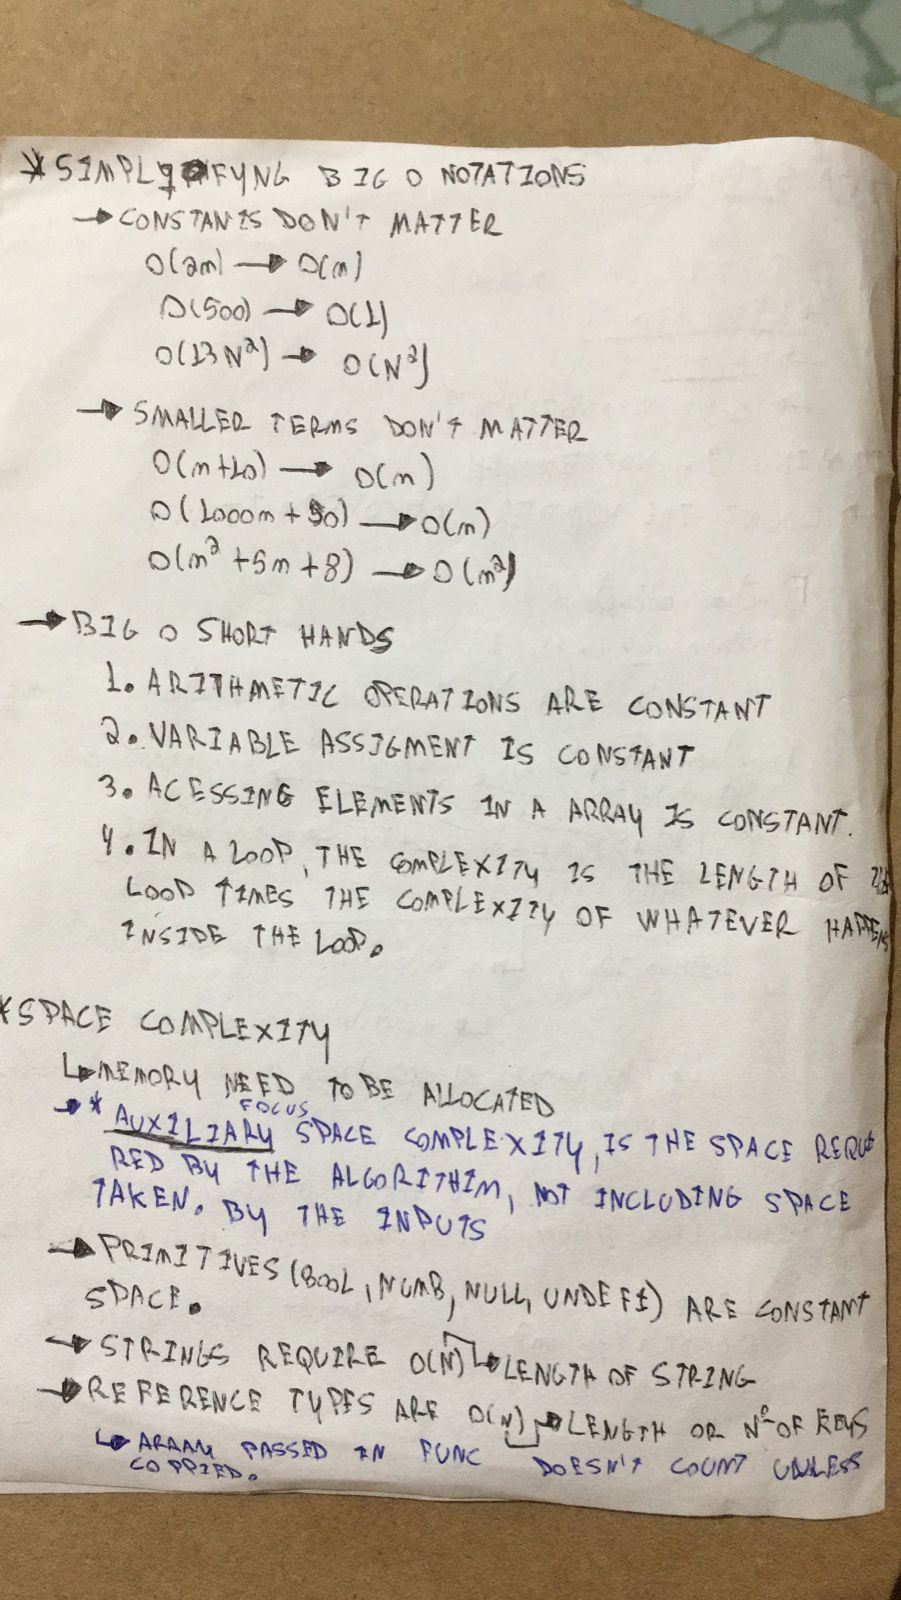 * SIMPLIFYNG BIG O NOTATIONS
→ CONSTANTS DON'T MATTER
O(2n) → O(n)
O(500) → O(1)
O(13N²) → O(N²)
→ SMALLER TERMS DON'T MATTER
O(n+10) → O(n)
O(1000n + 50) → O(n)
O(n² + 5n + 8) → O(n²)
→ BIG O SHORT HANDS
1. ARITHMETIC OPERATIONS ARE CONSTANT
2. VARIABLE ASSIGMENT IS CONSTANT
3. ACESSING ELEMENTS IN A ARRAY IS CONSTANT.
4. IN A LOOP, THE COMPLEXITY IS THE LENGTH OF THE
LOOP TIMES THE COMPLEXITY OF WHATEVER HAPPENS
INSIDE THE LOOP.
* SPACE COMPLEXITY
↳ MEMORY NEED TO BE ALLOCATED
FOCUS
→ * AUXILIARY SPACE COMPLEXITY, IS THE SPACE REQUI
RED BY THE ALGORITHIM, NOT INCLUDING SPACE
TAKEN. BY THE INPUTS
→ PRIMITIVES (BOOL, NUMB, NULL, UNDEFI) ARE CONSTANT
SPACE.
→ STRINGS REQUIRE O(N) ↳ LENGTH OF STRING
→ REFERENCE TYPES ARE O(N) → LENGTH OR Nº OF KEYS
↳ ARRAY PASSED IN FUNC DOESN'T COUNT UNLESS
COPPIED.